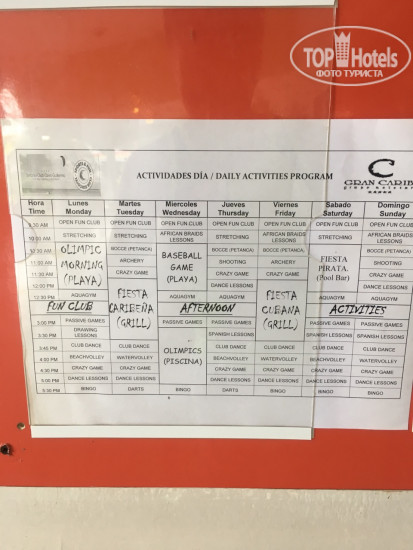 TOP Hotels
ФОТО ТУРИСТА
ACTIVIDADES DÍA / DAILY ACTIVITIES PROGRAM
GRAN CARIB
Hora Time Lunes Monday Martes Tuesday Miercoles Wednesday Jueves Thursday Viernes Friday Sabado Saturday Domingo Sunday
9:30 AM OPEN FUN CLUB OPEN FUN CLUB OPEN FUN CLUB OPEN FUN CLUB OPEN FUN CLUB OPEN FUN CLUB OPEN FUN CLUB
10:00 AM STRETCHING STRETCHING AFRICAN BRAIDS LESSONS STRETCHING AFRICAN BRAIDS LESSONS STRETCHING AFRICAN BRAIDS LESSONS
10:30 AM OLIMPIC MORNING (PLAYA) BOCCE (PETANCA) BASEBALL GAME (PLAYA) BOCCE (PETANCA) BOCCE (PETANCA) FIESTA PIRATA. (Pool Bar) BOCCE (PETANCA)
11:00 AM ARCHERY SHOOTING ARCHERY SHOOTING
11:30 AM CRAZY GAME CRAZY GAME CRAZY GAME CRAZY GAME
12:00 PM DANCE LESSONS DANCE LESSONS
12:30 PM AQUAGYM FIESTA CARIBEÑA (GRILL) AQUAGYM AQUAGYM FIESTA CUBANA (GRILL) AQUAGYM AQUAGYM
FUN CLUB AFTERNOON ACTIVITIES
3:00 PM PASSIVE GAMES PASSIVE GAMES PASSIVE GAMES PASSIVE GAMES PASSIVE GAMES
3:30 PM DRAWING LESSONS SPANISH LESSONS SPANISH LESSONS SPANISH LESSONS
3:45 PM CLUB DANCE CLUB DANCE OLIMPICS (PISCINA) CLUB DANCE CLUB DANCE CLUB DANCE CLUB DANCE
4:00 PM BEACHVOLLEY WATERVOLLEY BEACHVOLLEY WATERVOLLEY BEACHVOLLEY WATERVOLLEY
4:30 PM CRAZY GAME CRAZY GAME CRAZY GAME CRAZY GAME CRAZY GAME CRAZY GAME
5:00 PM DANCE LESSONS DANCE LESSONS DANCE LESSONS DANCE LESSONS DANCE LESSONS DANCE LESSONS
5:30 PM BINGO DARTS BINGO DARTS BINGO BINGO BINGO